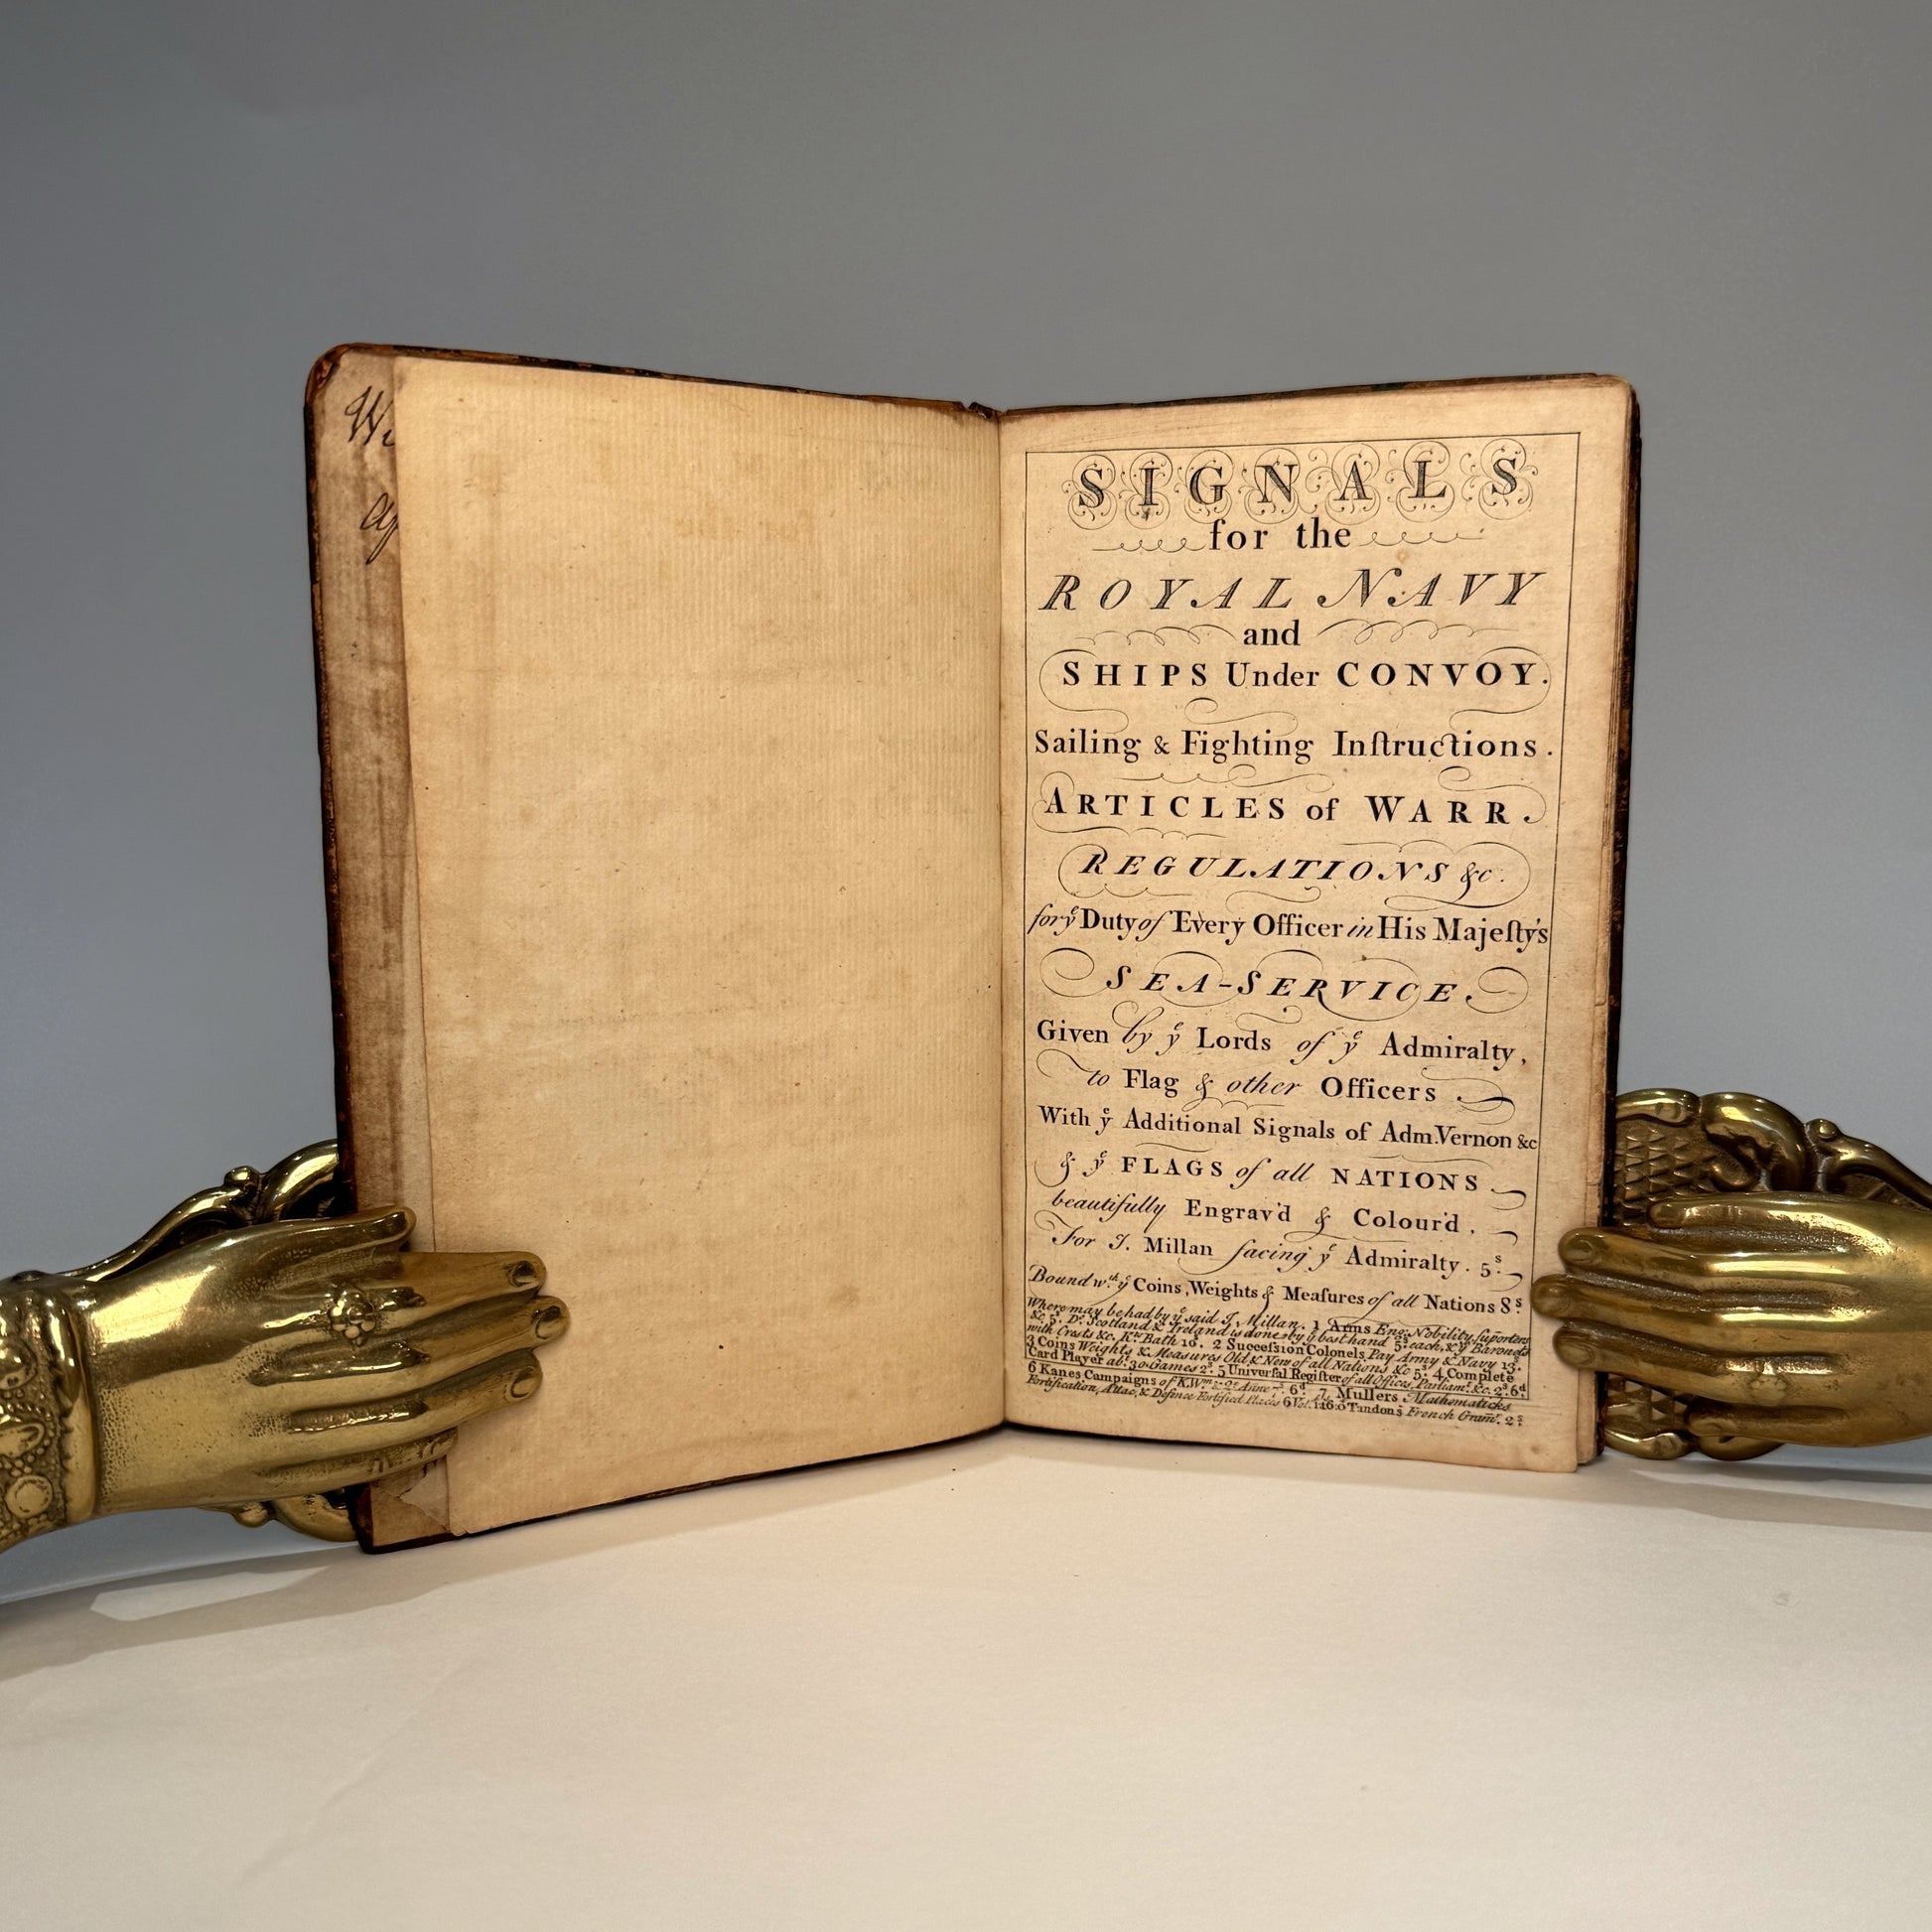 SIGNALS
for the
ROYAL NAVY
and
SHIPS Under CONVOY.
Sailing & Fighting Inſtructions.
ARTICLES of WARR.
REGULATIONS &c.
for yͤ Duty of Every Officer in His Majeſty's
SEA-SERVICE.
Given by yͤ Lords of yͤ Admiralty,
to Flag & other Officers
With yͤ Additional Signals of Adm. Vernon &c
& yͤ FLAGS of all NATIONS
beautifully Engrav'd & Colour'd.
For J. Millan facing yͤ Admiralty. 5ˢ.
Bound wᵗʰ yͤ Coins, Weights & Meaſures of all Nations 8ˢ.
Where may be had by yͤ said J. Millan. 1 Arms Eng. Nobility ſuporters
&c 5ˢ. Dᵒ. Scotland & Ireland is done by yͤ best hand 5ˢ. each, & yͤ Baronets
with Crests &c. Kᵗˢ Bath 10. 2 Succeſsion Colonels Pay Army & Navy 13ˢ.
3 Coins Weights & Measures Old & New of all Nations &c 5ˢ. 4 Complete
Card Player abᵗ. 30 Games 2ˢ. 5 Univerſal Regiſter of all Offices, Parliamᵗ. &c. 2ˢ 6ᵈ
6 Kanes Campaigns of K. Wᵐ & Qⁿ Anne 6ᵈ Mullers Mathematicks
Fortification, Attac, & Defence Fortified Places 6 Vol. Tandons French Gramʳ. 2ˢ.